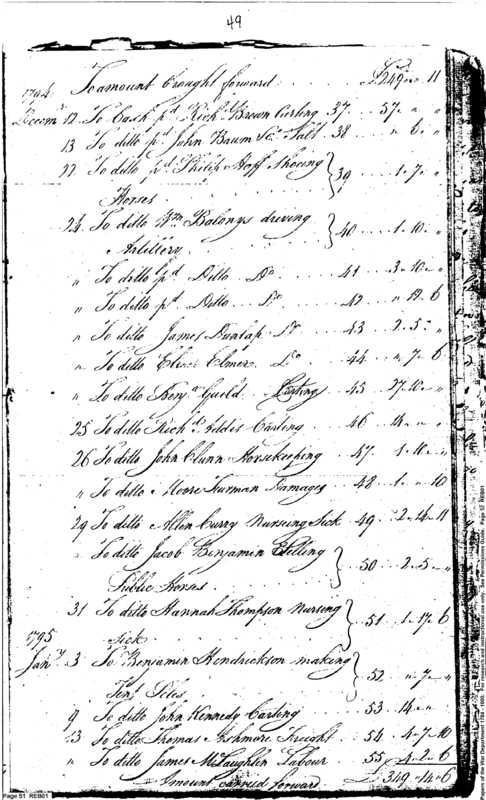 49
To amount brought forward £249 " 11
1794
Decem 12 To Cash pd. Richd. Brown Carting 37 57 " "
13 To ditto pd. John Baum Salt 38 " 6 "
22 To ditto pd. Philip Hoff Shoeing
Horses 39 1 7 "
24 To ditto Wm. driving
Artillery 40 1 10 "
" To ditto pd. Ditto Do 41 3 10 "
" To ditto pd. Ditto Do 42 " 12 6
" To ditto James Dunlap Do 43 2 5 "
" To ditto Elmer Do 44 " 7 6
" To ditto Benjn. Guild Carting 45 27 10 "
25 To ditto Richd. Carting 46 14 " "
26 To ditto John Clunn Horsekeeping 47 1 10 "
" To ditto Moore Furman Damages 48 1 " 10
29 To ditto Allen Curry Nursing Sick 49 2 14 11
" To ditto Jacob Benjamin
Public Horses 50 2 5 "
31 To ditto Hannah Thompson Nursing
Sick 51 1 17 6
1795
Jany. 3 To Benjamin Hendrickson making
Tent Poles 52 " 7 "
9 To ditto John Kennedy Carting 53 14 "
13 To ditto Thomas Ashmore Freight 54 4 7 10
" To ditto James McLaughlin Labour 55 4 2 6
Amount carried forward £349 14 6
Page 51 REB01